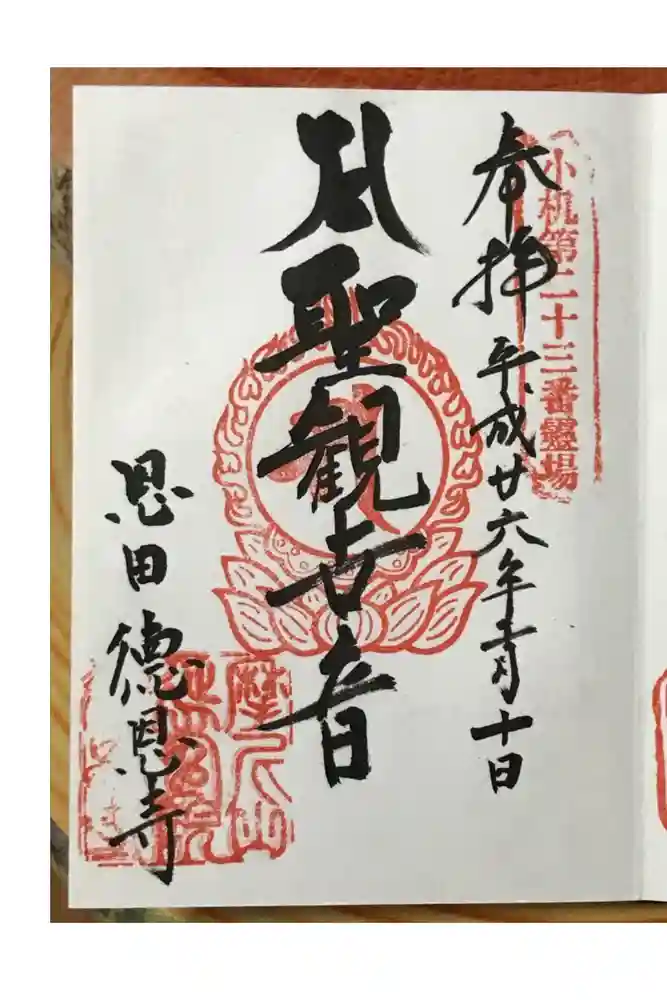 小机第二十三番霊場
奉拝 平成廿六年三月十日
聖観世音
恩田 徳恩寺
摩尼山